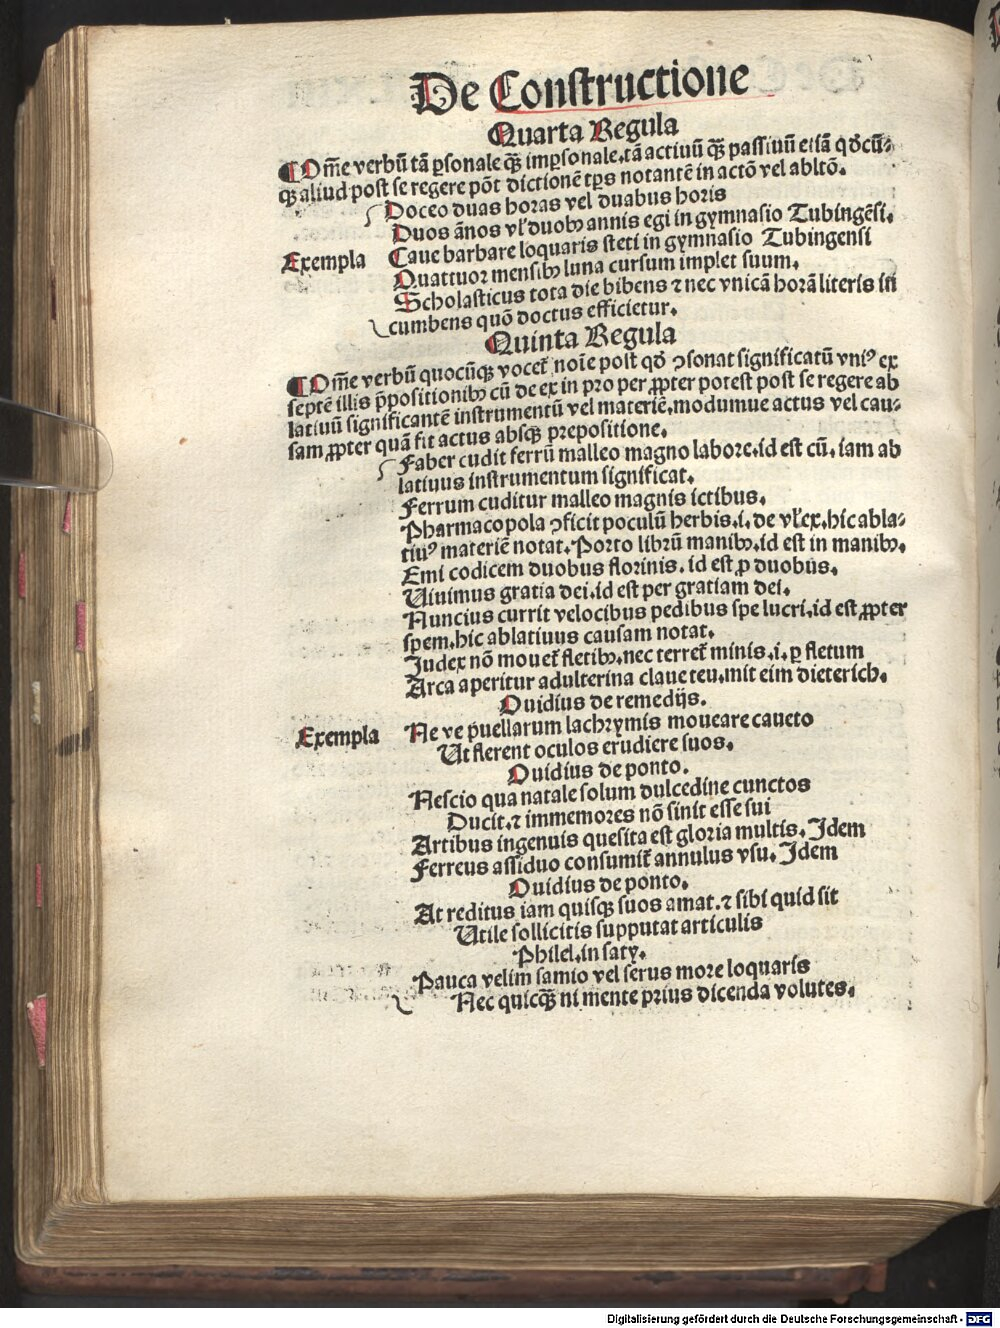 De Constructione
Quarta Regula
Om̄e verbū tā ꝑsonale qꝫ̄ imꝑsonale, tā actiuū qꝫ̄ passiuū etiā qđcū-
qꝫ aliud post se regere põt dictionē tꝑs notantē in actō vel abltō.
Doceo duas horas vel duabus horis
Duos ān̄os vl' duobꝫ annis egi in gymnasio Tubingēsi.
Exempla Caue barbare loquaris steti in gymnasio Tubingensi
Quattuor mensibꝫ luna cursum implet suum.
Scholasticus tota die bibens ⁊ nec vnicā horā literis in
cumbens quō doctus efficietur.
Quinta Regula
Om̄e verbū quocūqꝫ vocet̄ noīe post qđ ꝯsonat significatū vniꝰ ex
septē illis p̄positionibꝫ cū de ex in pro per ꝓpter potest post se regere ab
latiuū significantē instrumentū vel materiē, modumue actus vel cau-
sam ꝓpter quā fit actus absqꝫ prepositione.
Faber cudit ferrū malleo magno labore. id est cū. iam ab
latiuus instrumentum significat.
Ferrum cuditur malleo magnis ictibus.
Pharmacopola ꝯficit poculū herbis. i. de vl' ex. hic abla-
tiuꝰ materiē notat. Porto librū manibꝫ. id est in manibꝫ.
Emi codicem duobus florinis. id est ꝓ duobus.
Viuimus gratia dei. id est per gratiam dei.
Nuncius currit velocibus pedibus spe lucri, id est ꝓpter
spem. hic ablatiuus causam notat.
Judex nō mouet̄ fletibꝫ. nec terret̄ minis. i. ꝑ fletum
Arca aperitur adulterina claue teu. mit eim dieterich.
Ouidius de remedijs.
Exempla Ne ve puellarum lachrymis moueare caueto
Ut flerent oculos erudiere suos.
Ouidius de ponto.
Nescio qua natale solum dulcedine cunctos
Ducit. ⁊ immemores nō sinit esse sui
Artibus ingenuis quesita est gloria multis. Idem
Ferreus assiduo consumit̄ annulus vsu. Idem
Ouidius de ponto.
At reditus iam quisqꝫ suos amat. ⁊ sibi quid sit
Utile sollicitis supputat articulis
Philel. in saty.
Pauca velim samio vel serus more loquaris
Nec quicqꝫ̄ ni mente prius dicenda volutes.
Digitalisierung gefördert durch die Deutsche Forschungsgemeinschaft - DFG